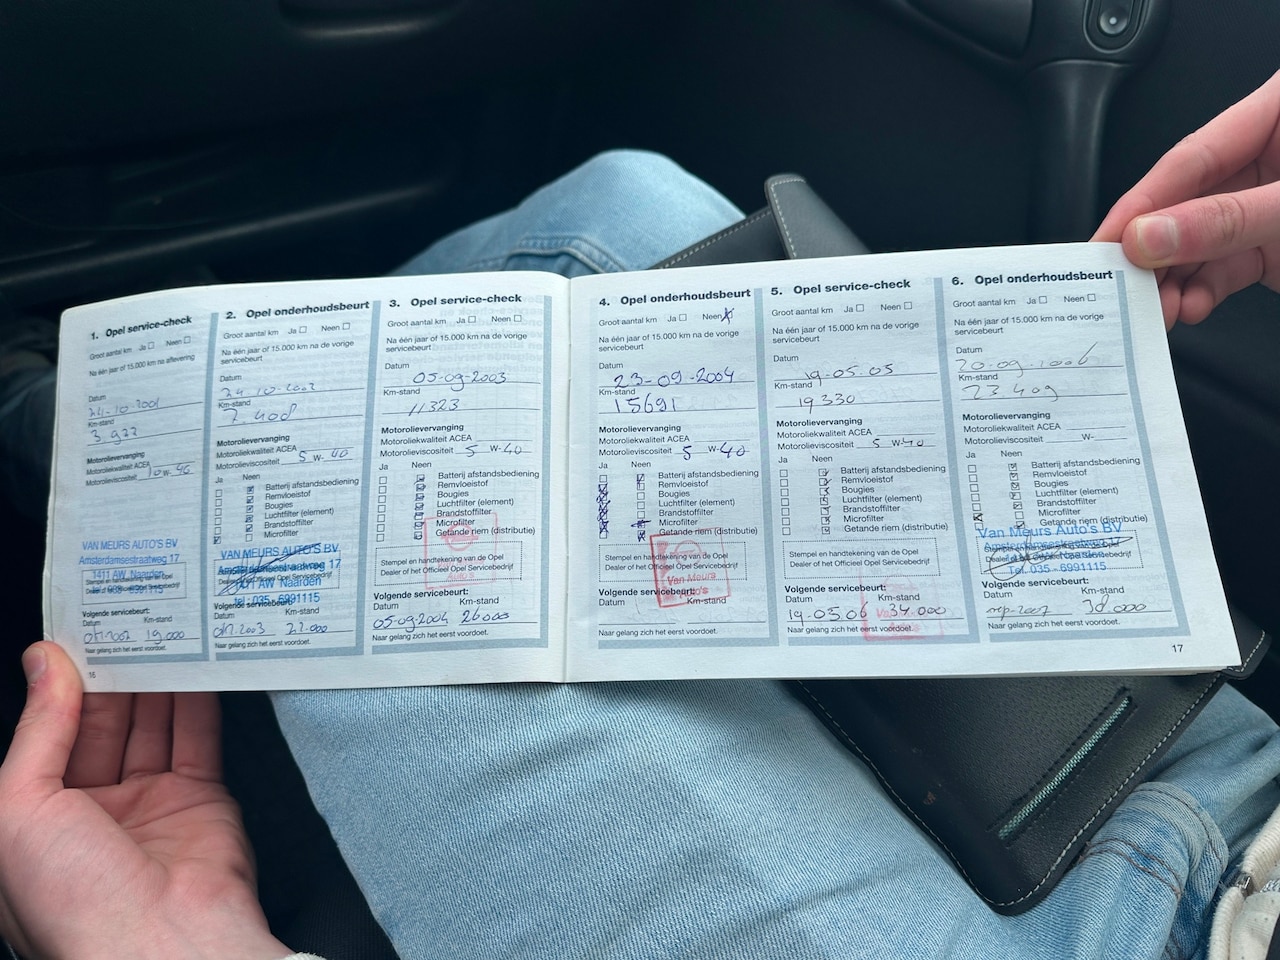 1. Opel service-check
Groot aantal km Ja Neen
Na één jaar of 15.000 km na aflevering
Datum
24-10-2001
Km-stand
3.922
Motorolievervanging
Motoroliekwaliteit ACEA
Motorolieviscositeit 10 W-46
VAN MEURS AUTO'S BV
Amsterdamsestraatweg 17
1411 AW Naarden
Stempel en handtekening van de Opel
Volgende servicebeurt:
Datum Km-stand
okt.2002 19.000
Naar gelang zich het eerst voordoet.
16
2. Opel onderhoudsbeurt
Groot aantal km Ja Neen
Na één jaar of 15.000 km na de vorige
servicebeurt
Datum
24-10-2002
Km-stand
7.408
Motorolievervanging
Motoroliekwaliteit ACEA
Motorolieviscositeit 5 W-40
Ja Neen
Batterij afstandsbediening
Remvloeistof
Bougies
Luchtfilter (element)
Brandstoffilter
Microfilter
VAN MEURS AUTO'S BV
Amsterdamsestraatweg 17
Dealer of het Officieel Opel Servicebedrijf
1411 AW Naarden
tel: 035 - 6991115
Volgende servicebeurt:
Datum Km-stand
okt.2003 22.000
Naar gelang zich het eerst voordoet.
3. Opel service-check
Groot aantal km Ja Neen
Na één jaar of 15.000 km na de vorige
servicebeurt
Datum
05-09-2003
Km-stand
11323
Motorolievervanging
Motoroliekwaliteit ACEA
Motorolieviscositeit 5 W-40
Ja Neen
Batterij afstandsbediening
Remvloeistof
Bougies
Luchtfilter (element)
Brandstoffilter
Microfilter
Getande riem (distributie)
Stempel en handtekening van de Opel
Dealer of het Officieel Opel Servicebedrijf
Volgende servicebeurt:
Datum Km-stand
05-09-2004 26000
Naar gelang zich het eerst voordoet.
4. Opel onderhoudsbeurt
Groot aantal km Ja Neen
Na één jaar of 15.000 km na de vorige
servicebeurt
Datum
23-09-2004
Km-stand
15691
Motorolievervanging
Motoroliekwaliteit ACEA
Motorolieviscositeit 5 W-40
Ja Neen
Batterij afstandsbediening
Remvloeistof
Bougies
Luchtfilter (element)
Brandstoffilter
Microfilter
Getande riem (distributie)
Stempel en handtekening van de Opel
Dealer of het Officieel Opel Servicebedrijf
Van Meurs
Auto's
Volgende servicebeurt:
Datum Km-stand
Naar gelang zich het eerst voordoet.
5. Opel service-check
Groot aantal km Ja Neen
Na één jaar of 15.000 km na de vorige
servicebeurt
Datum
19-05-05
Km-stand
19330
Motorolievervanging
Motoroliekwaliteit ACEA
Motorolieviscositeit 5 W-40
Ja Neen
Batterij afstandsbediening
Remvloeistof
Bougies
Luchtfilter (element)
Brandstoffilter
Microfilter
Getande riem (distributie)
Stempel en handtekening van de Opel
Dealer of het Officieel Opel Servicebedrijf
Volgende servicebeurt:
Datum Km-stand
19-05.06 34.000
Naar gelang zich het eerst voordoet.
6. Opel onderhoudsbeurt
Groot aantal km Ja Neen
Na één jaar of 15.000 km na de vorige
servicebeurt
Datum
Km-stand
23409
Motorolievervanging
Motoroliekwaliteit ACEA
Motorolieviscositeit W-
Ja Neen
Batterij afstandsbediening
Remvloeistof
Bougies
Luchtfilter (element)
Brandstoffilter
Microfilter
Getande riem (distributie)
VAN MEURS AUTO'S BV
Dealer of het Officieel Opel Servicebedrijf
Tel. 035 - 6991115
Volgende servicebeurt:
Datum Km-stand
38.000
Naar gelang zich het eerst voordoet.
17